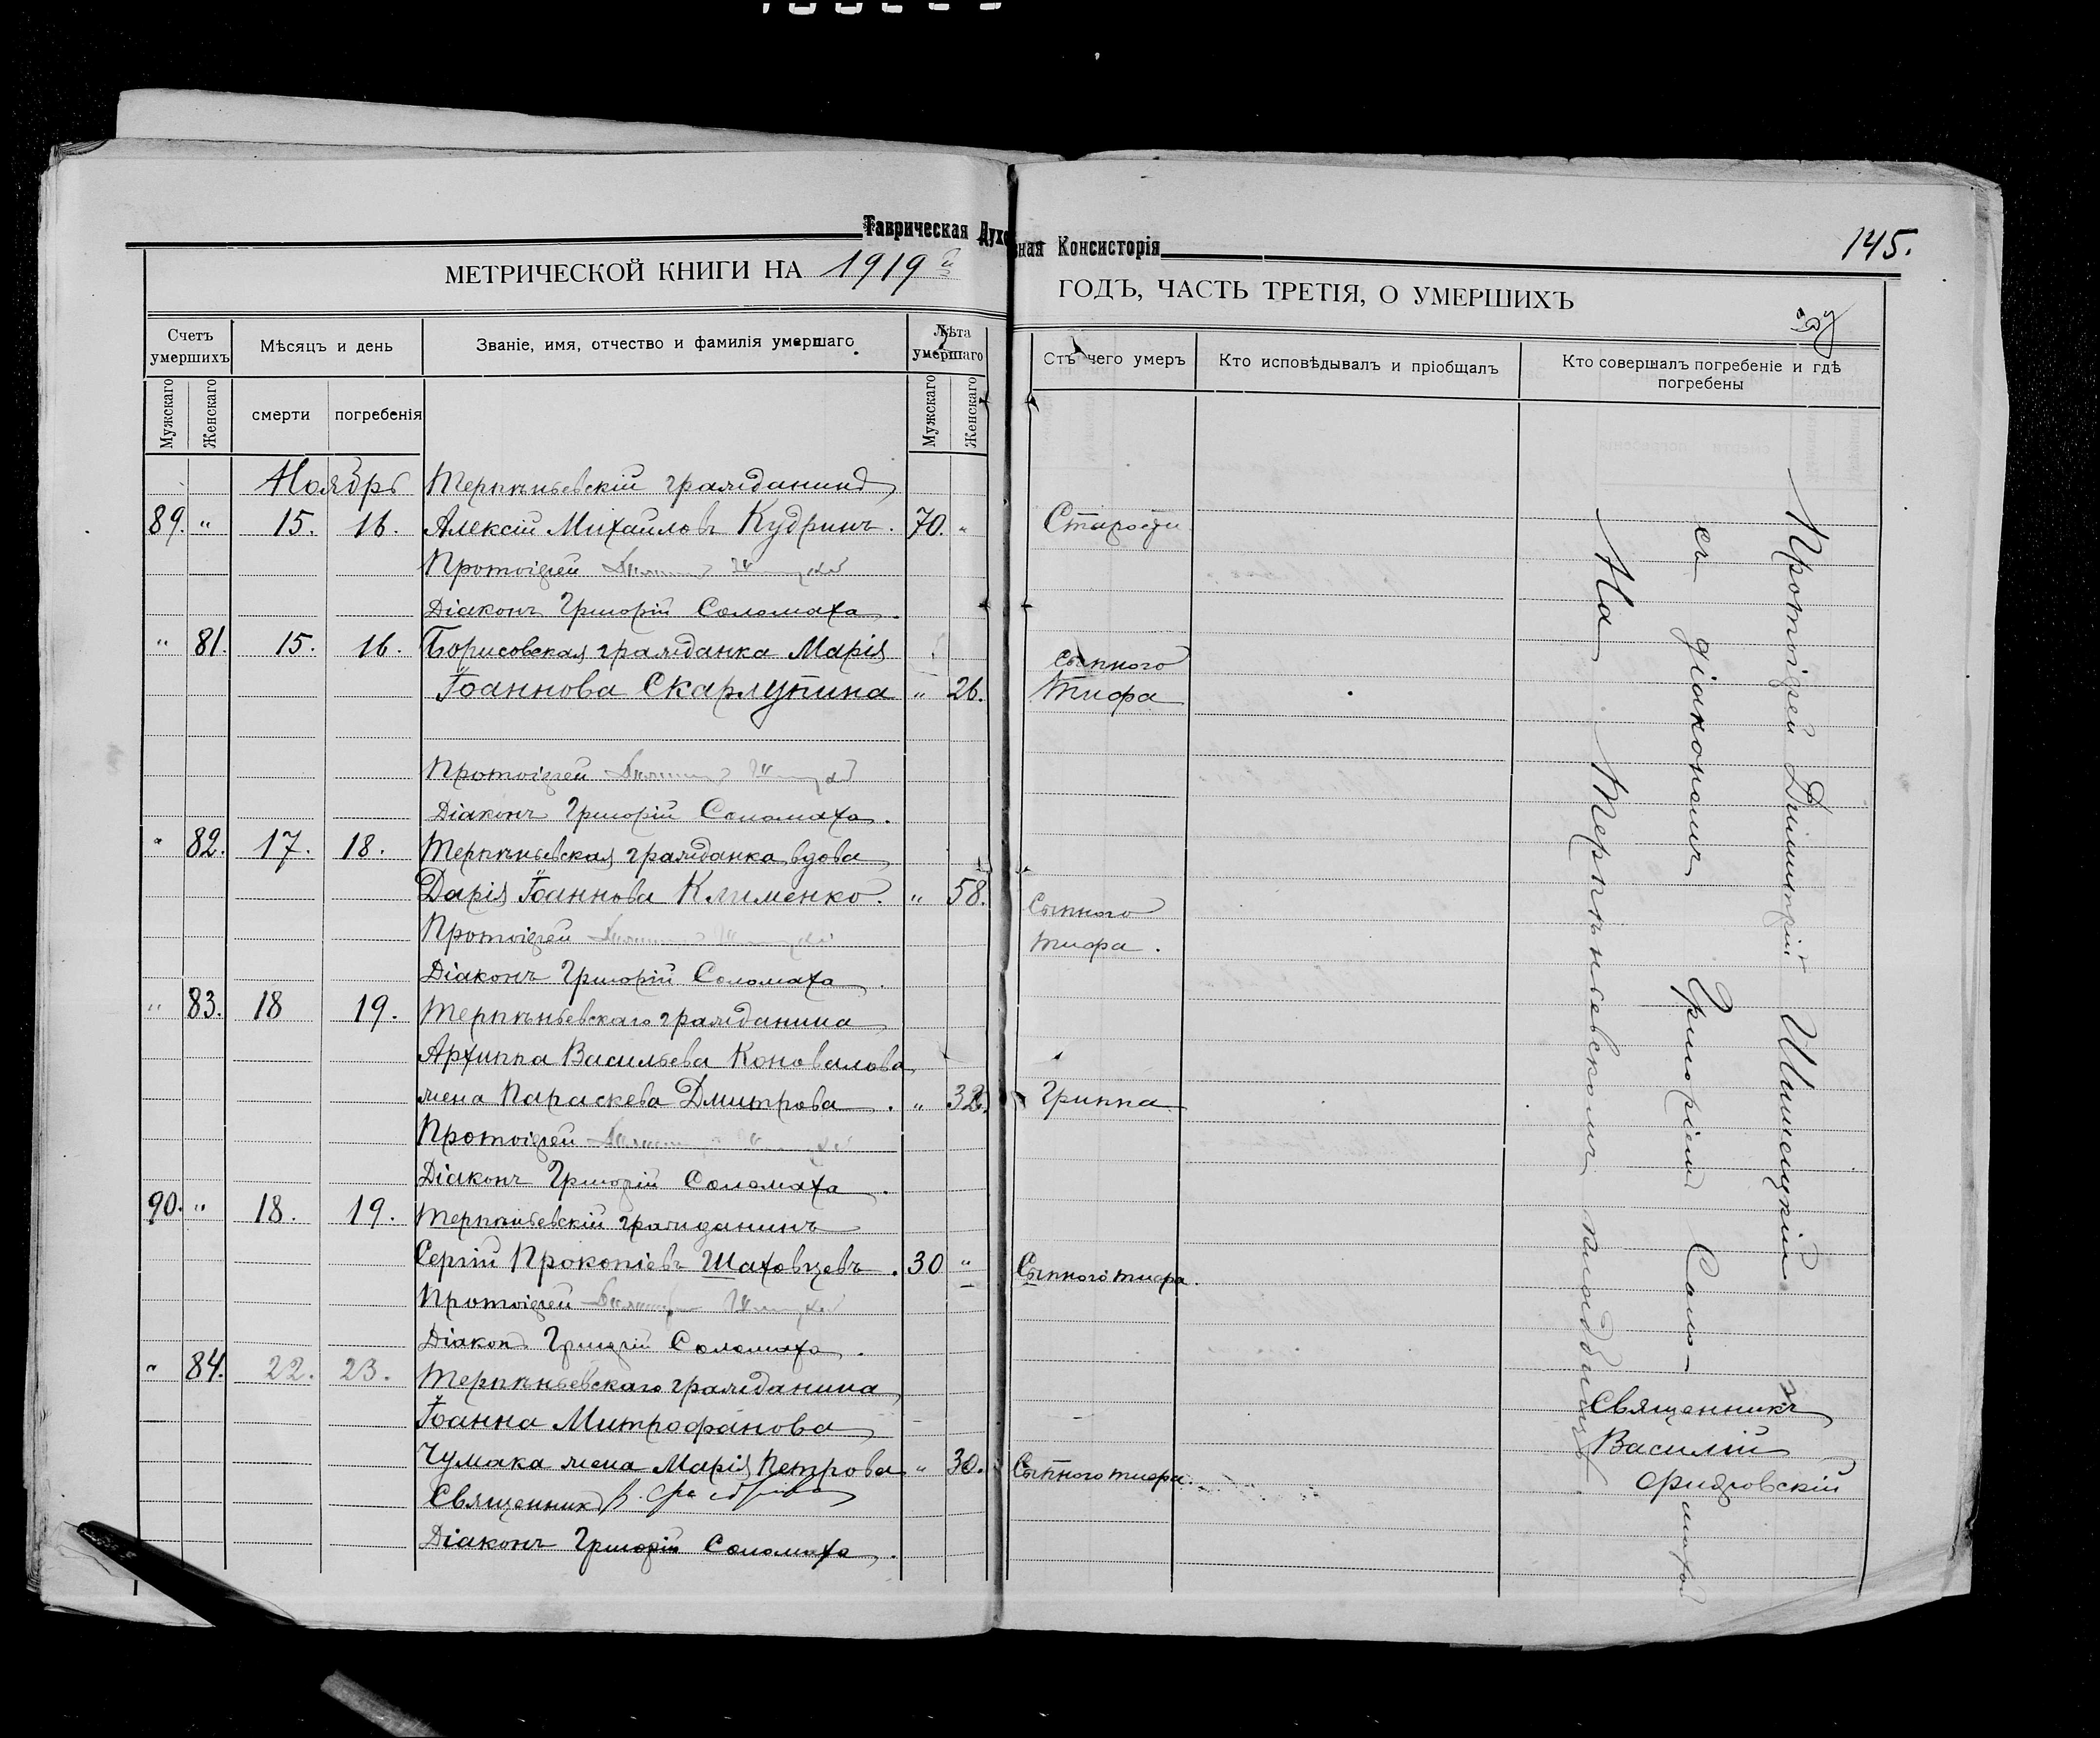 Таврическая Духовная Консисторія
145.
МЕТРИЧЕСКОЙ КНИГИ НА 1919 й ГОДЪ, ЧАСТЬ ТРЕТІЯ, О УМЕРШИХЪ
Счетъ умершихъ
Мѣсяцъ и день
Званіе, имя, отчество и фамилія умершаго
Лѣта умершаго
Отъ чего умеръ
Кто исповѣдывалъ и пріобщалъ
Кто совершалъ погребеніе и гдѣ погребены
Мужскаго
Женскаго
смерти
погребенія
Мужскаго
Женскаго
Ноябрь Терпѣньевскій гражданинъ
89. " 15. 16. Алексій Михаиловъ Кудринъ. 70. " Старости
Протоіерей
Діаконъ Григорій Соломаха.
" 81. 15. 16. Борисовская гражданка Марія
Іоаннова Скарлупина " 26. сыпного тифа
Протоіерей
Діаконъ Григорій Соломаха.
" 82. 17. 18. Терпѣньевская гражданка вдова
Дарія Іоаннова Клименко. " 58. Сыпного
Протоіерей тифа.
Діаконъ Григорій Соломаха.
" 83. 18 19. Терпѣньевскаго гражданина
Архиппа Васильева Коновалова
жена Параскева Дмитрова. " 32. Гриппа
Протоіерей
Діаконъ Григорій Соломаха.
90. " 18. 19. Терпѣньевскій гражданинъ
Сергій Прокопіевъ Шаховцевъ. 30 " Сыпного тифа.
Протоіерей
Діаконъ Григорій Соломаха.
" 84. 22. 23. Терпѣньевскаго гражданина
Іоанна Митрофанова
Чумака жена Марія Петрова " 30. Сыпного тифа.
Священникъ В.
Діаконъ Григорій Соломаха.
Протоіерей Димитрій Шишецкій
съ діакономъ Григоріемъ Соло-
махой
На Терпѣньевскомъ кладбищѣ
Священникъ
Василій